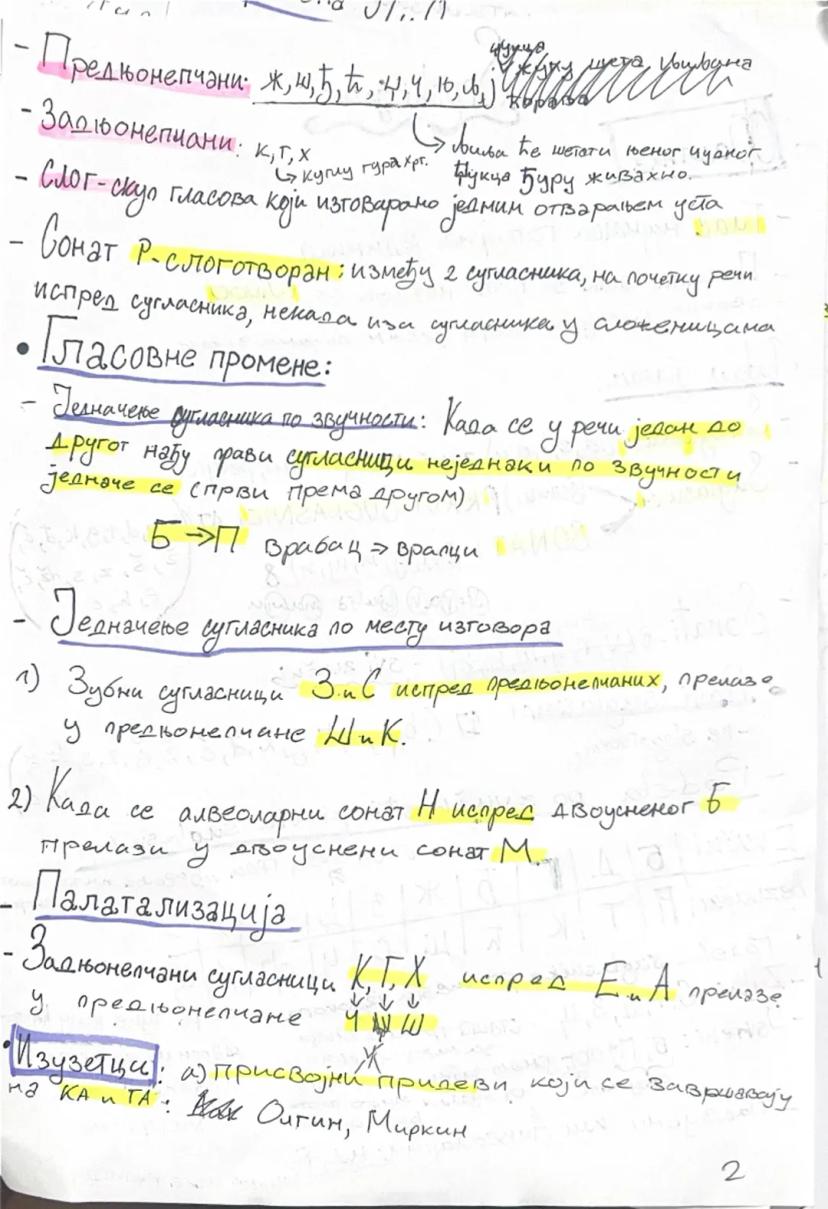 - Предњонепчани: ж, ш, ђ, ћ, џ, ч, њ, љ, ј
цукца
жуљу шета Виљвана
корава
- Задњонепчани: к, г, х
→ Виља ће шетати њеног чудног
→ куглу гура хрт.
Џукца Ђуру живахно.
- Слог - скуп гласова који изговарамо једним отварањем уста
- Сонат Р-слоготворан: између 2 сугласника, на почетку речи
испред сугласника, некада иза сугласника у сложеницама
• Гласовне промене:
- Једначење сугласника по звучности: Када се у речи један до
другог нађу прави сугласници неједнаки по звучности
једначе се (први према другом)
Б → П врабац ⇒ врапци
- Једначење сугласника по месту изговора
1) Зубни сугласници З и С испред предњонепчаних, прелазе
у предњонепчане Ш и К.
2) Када се алвеоларни сонат Н испред двоусненог Б
прелази у двоуснени сонат М.
- Палатализација
- Задњонепчани сугласници К, Г, Х испред Е и А прелазе
у предњонепчане Ч Ш
Ж
• Изузетци: а) Присвојни придеви који се завршавају
на КА и ГА: Олгин, Миркин
2